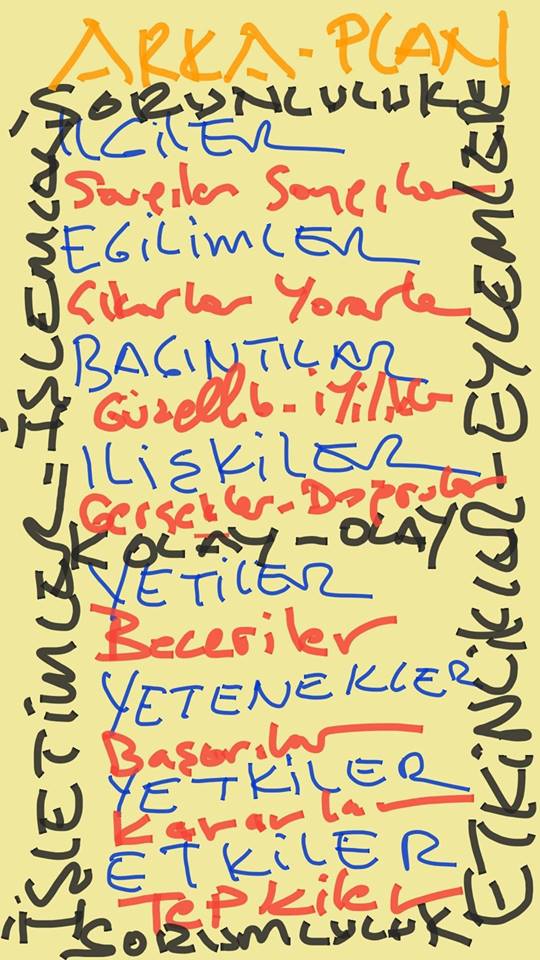 ARKA-PLAN
SORUNLULUK
İLGİLER
Saygılar Sevgiler
EGİLİMLER
Çıkarlar Yararlar
BAGINTILAR
Güzellik-iyilik
İLİŞKİLER
Gerçekler-Doğrular
KOLAY-OLAY
YETİLER
Beceriler
YETENEKLER
Başarılar
YETKİLER
Kararlar
ETKİLER
TepKiler
SORUMLULUK
İŞLETİMLER-İŞLEMLER
ETKİNLİKLER-EYLEMLER